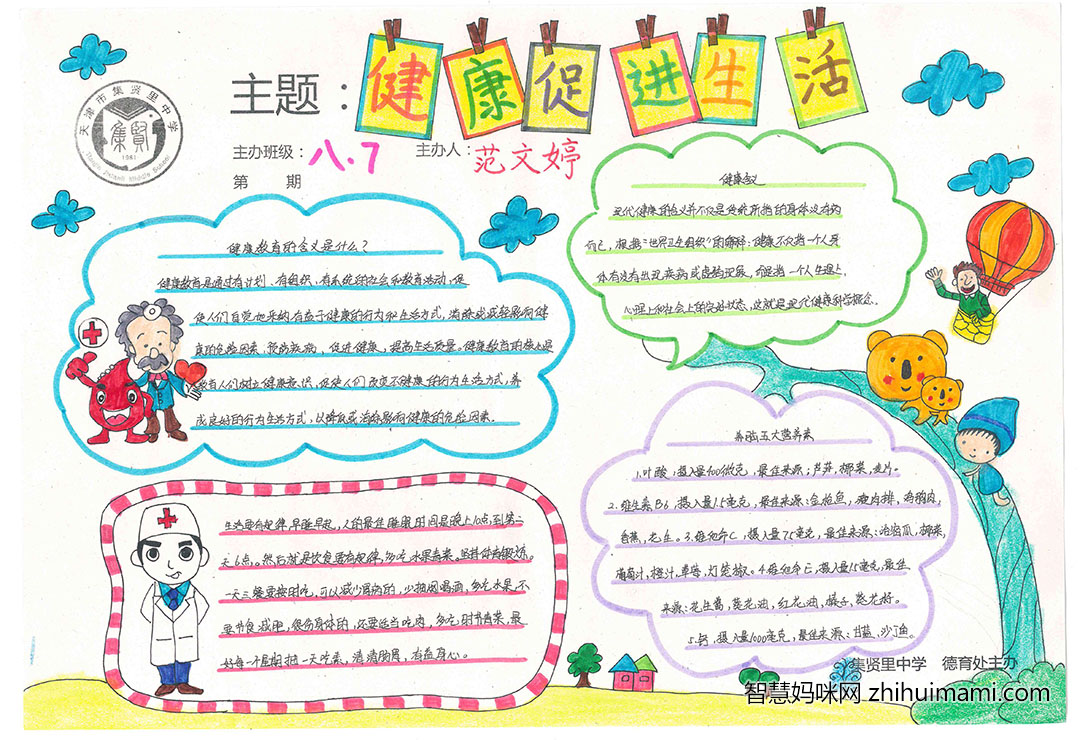 主题：健康促进生活
天津市集贤里中学
集賢
1981
Tianjin Jixianli Middle School
主办班级：八.7
主办人：范文婷
第 期
健康教育的含义是什么？
健康教育是通过有计划、有组织、有系统的社会和教育活动，促
使人们自觉地采纳有益于健康的行为和生活方式，消除或减轻影响健
康的危险因素，预防疾病，促进健康，提高生活质量。健康教育的核心是
教育人们树立健康意识，促使人们改变不健康的行为生活方式，养
成良好的行为生活方式，以降低或消除影响健康的危险因素。
健康含义
现代健康的含义并不仅是传统所指的身体没有病
而已，根据“世界卫生组织”的解释：健康不仅指一个人身
体有没有出现疾病或虚弱现象，而是指一个人生理上、
心理上和社会上的完好状态，这就是现代健康科学概念。
生活要有规律，早睡早起，人的最佳睡眠时间是晚上10点到第二
天6点。然后就是饮食要有规律，多吃水果青菜。坚持体育锻炼。
一天三餐要按时吃，可以减少胃病的，少抽烟喝酒，多吃水果，不
要节食减肥，很伤身体的，还要适当吃肉，多吃时节青菜，最
好每一个星期抽一天吃素，清清肠胃，有益身心。
养脑五大营养素
1.叶酸，摄入量400微克，最佳来源：芦笋，椰菜，麦片。
2.维生素B6，摄入量1.5毫克，最佳来源：金枪鱼，瘦肉排，鸡胸肉，
香蕉，花生。3.维他命C，摄入量75毫克，最佳来源：哈密瓜，椰菜，
葡萄汁，橙汁，草莓，灯笼椒。4.维他命E，摄入量15毫克，最佳
来源：花生酱，葵花油，红花油，榛子，葵花籽。
5.钙，摄入量1000毫克，最佳来源：甘蓝，沙丁鱼。
集贤里中学 德育处主办
智慧妈咪网 zhihuimami.com